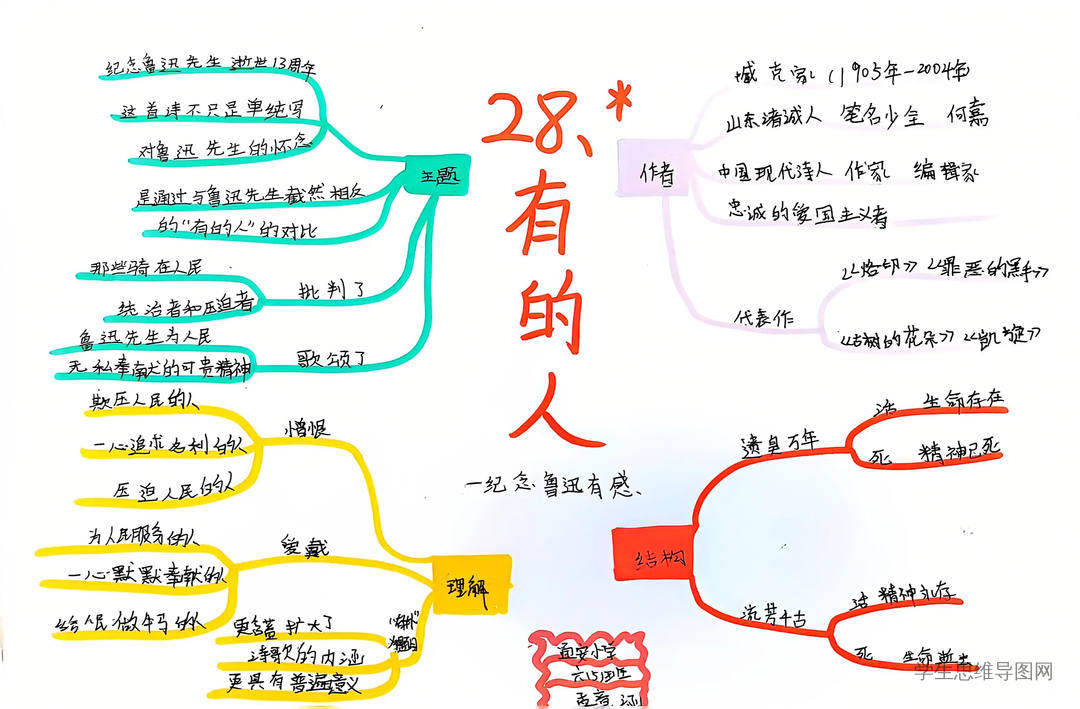 28、*
有的人
一纪念鲁迅有感、
主题
纪念鲁迅先生逝世13周年
这首诗不只是单纯写
对鲁迅先生的怀念
是通过与鲁迅先生截然相反
的“有的人”的对比
批判了
那些骑在人民
统治者和压迫者
歌颂了
鲁迅先生为人民
无私奉献的可贵精神
作者
臧克家(1905年-2004年
山东诸诚人 笔名少全 何嘉
中国现代诗人 作家 编辑家
忠诚的爱国主义者
代表作
《烙印》《罪恶的黑手》
《古树的花朵》《凯旋》
理解
憎恨
欺压人民的人
一心追求名利的人
压迫人民的人
爱戴
为人民服务的人
一心默默奉献的人
给人民做牛马的人
“有的人”为题目
扩大了
诗歌的内涵
更具有普遍意义
结构
遗臭万年
活 生命存在
死 精神已死
流芳千古
活 精神永存
死 生命
小学
学生思维导图网